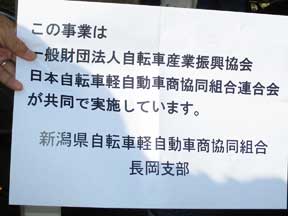 この事業は
一般財団法人自転車産業振興協会
日本自転車軽自動車商協同組合連合会
が共同で実施しています。
新潟県自転車軽自動車商協同組合
長岡支部